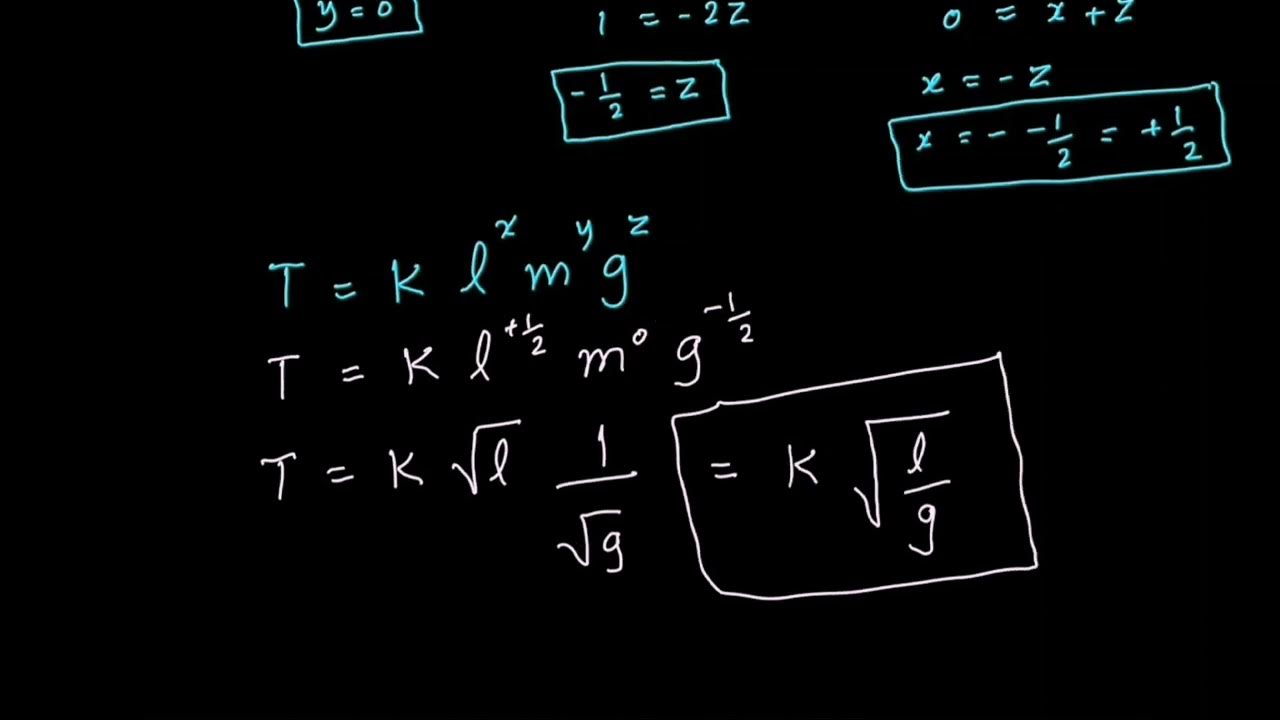 y = 0
1 = -2z
0 = x + z
-1/2 = z
x = -z
x = - -1/2 = +1/2
T = K l^x m^y g^z
T = K l^+1/2 m^0 g^-1/2
T = K √l 1/√g = K √(l/g)